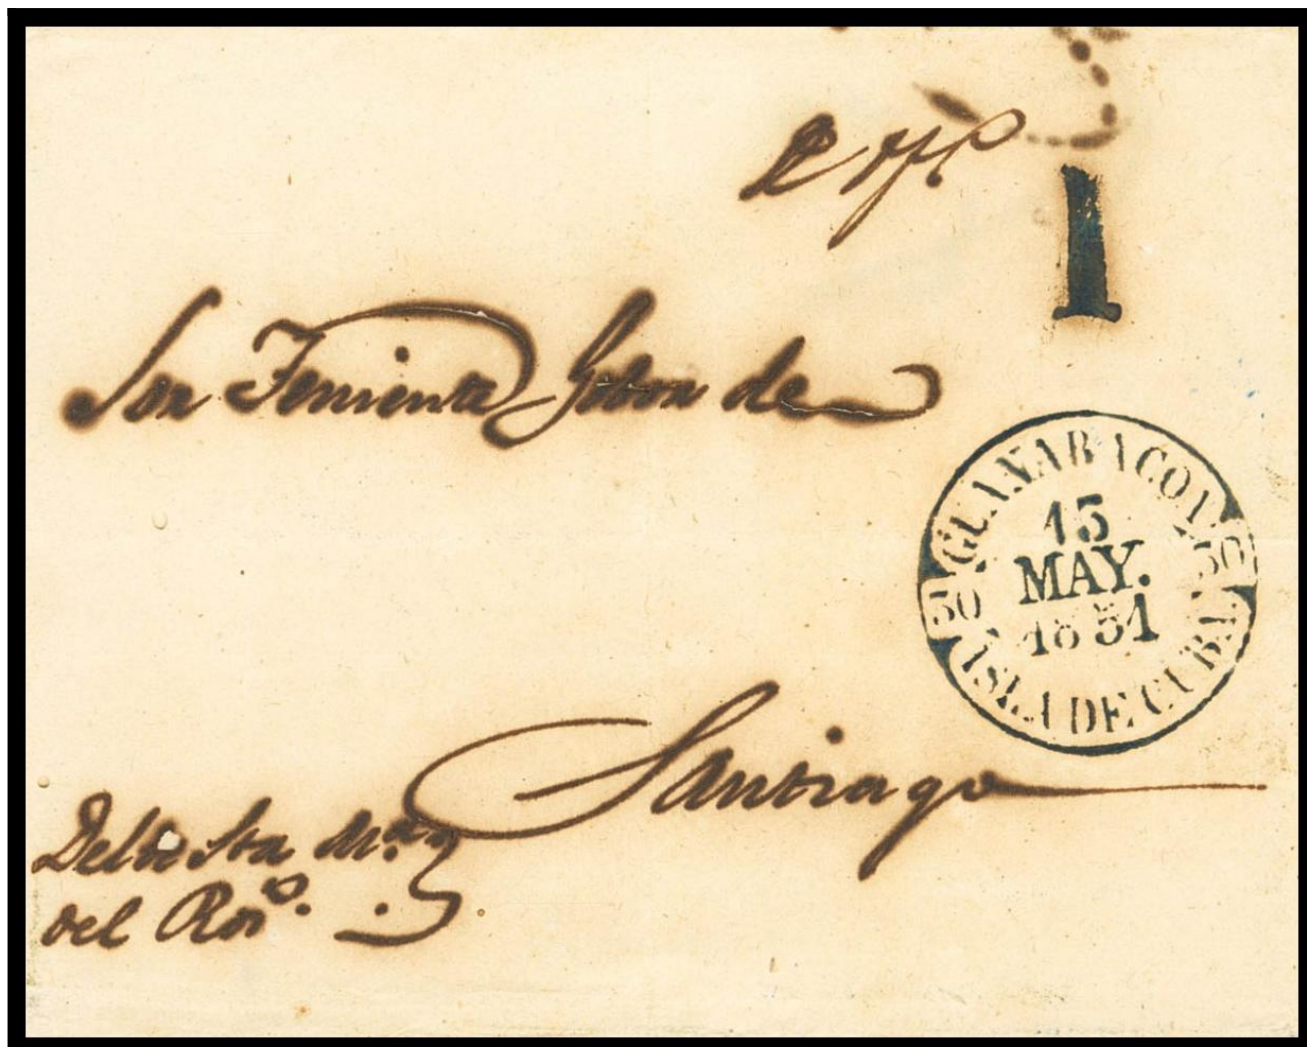 1
Sor Teniente Gobor de
GUANABACOA
15
MAY.
1851
ISLA DE CUBA
Santiago
Sta Ma.
del Roso.